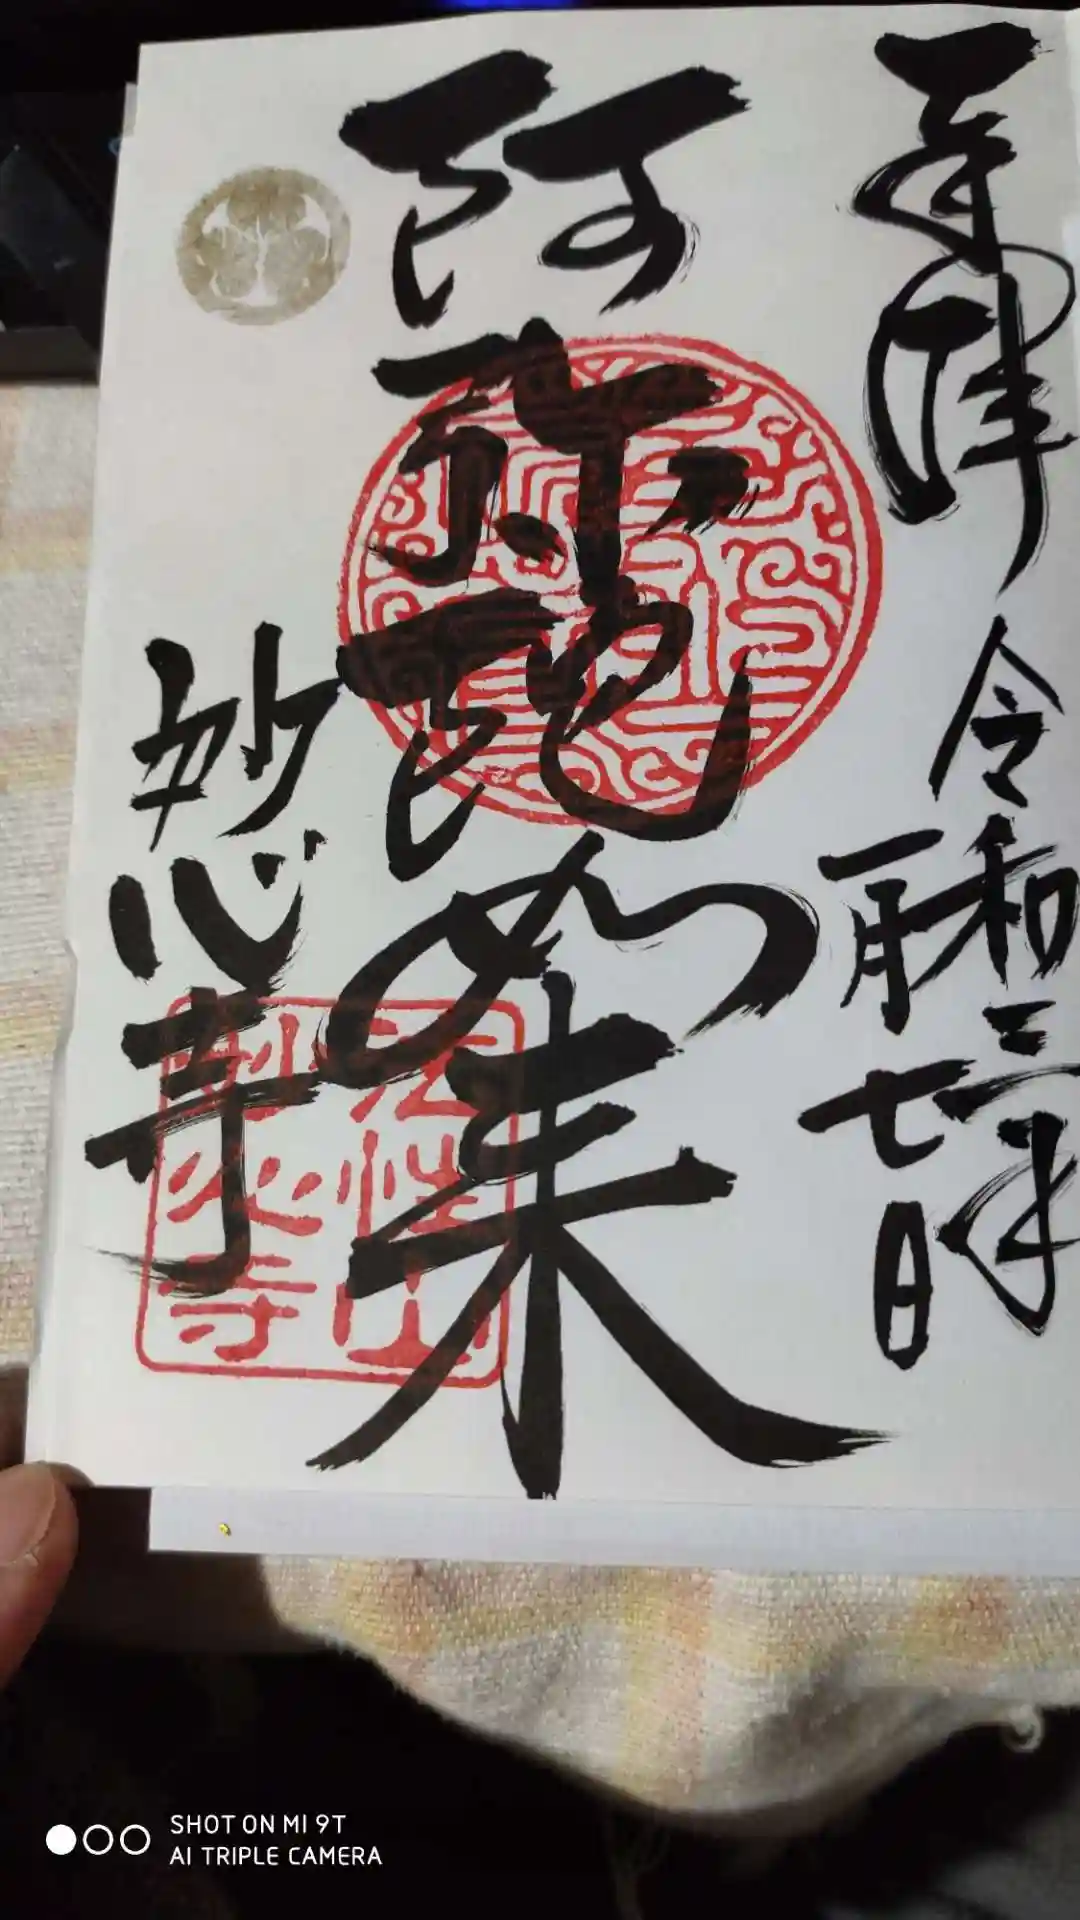 奉拝
令和三年
一月七日
阿弥陀如来
妙心寺
法性山
妙心寺
SHOT ON MI 9T
AI TRIPLE CAMERA